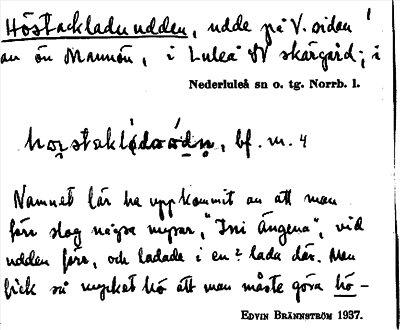 Höstackladuudden, udde på V. sidan
av ön Mannön, i Luleå N skärgård; i
Nederluleå sn o. tg. Norrb. l.
bf. m. 4
Namnet lär ha uppkommit av att man
förr slog några myrar, "Ini Ängena", vid
udden förr, och ladade i en lada där. Man
fick så mycket hö att man måste göra hö-
EDVIN BRÄNNSTRÖM 1937.